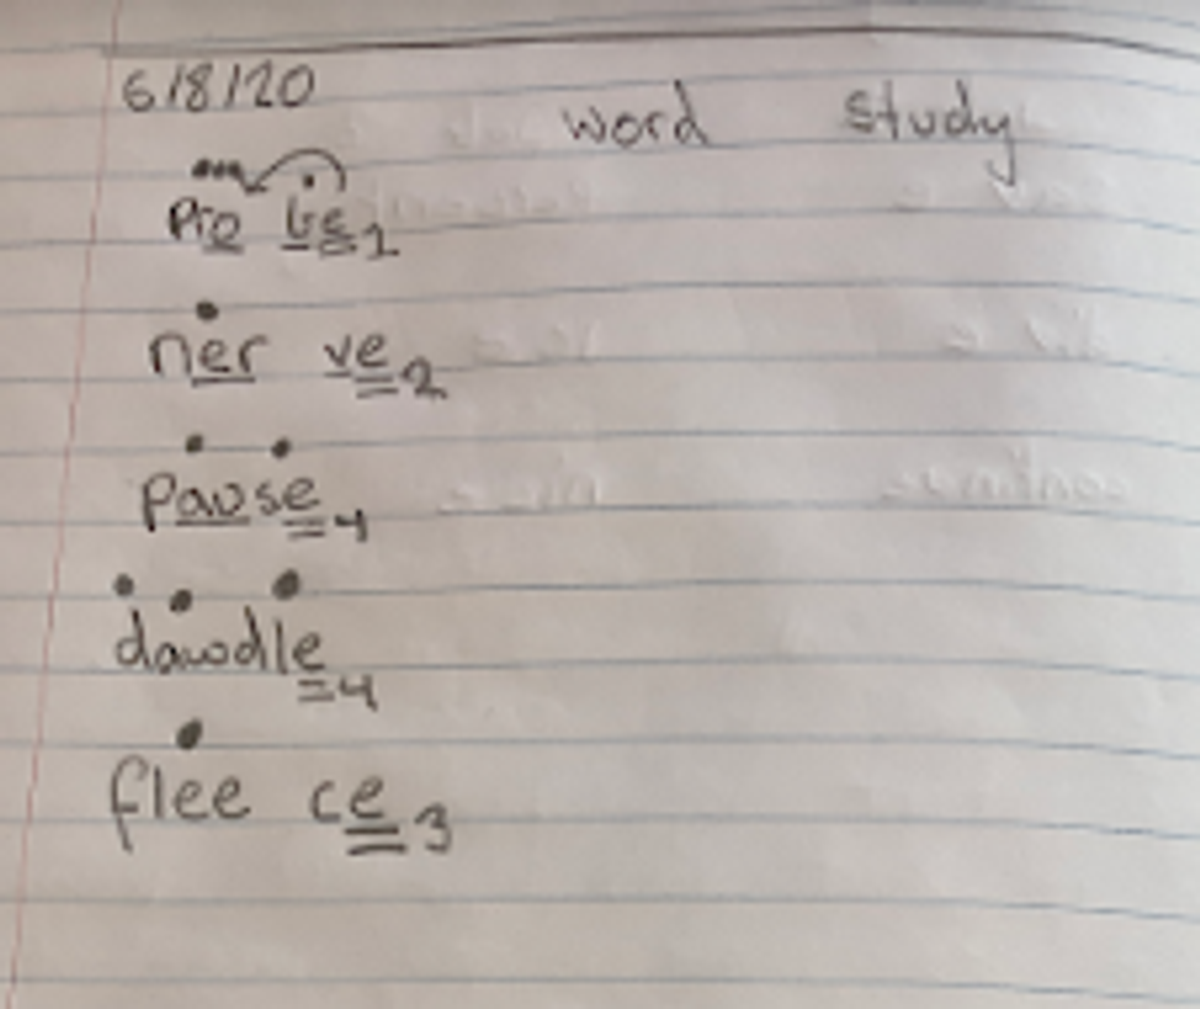 6/8/20
word study
Pro be 1
ner ve 2
pause 4
dawdle 4
flee ce 3